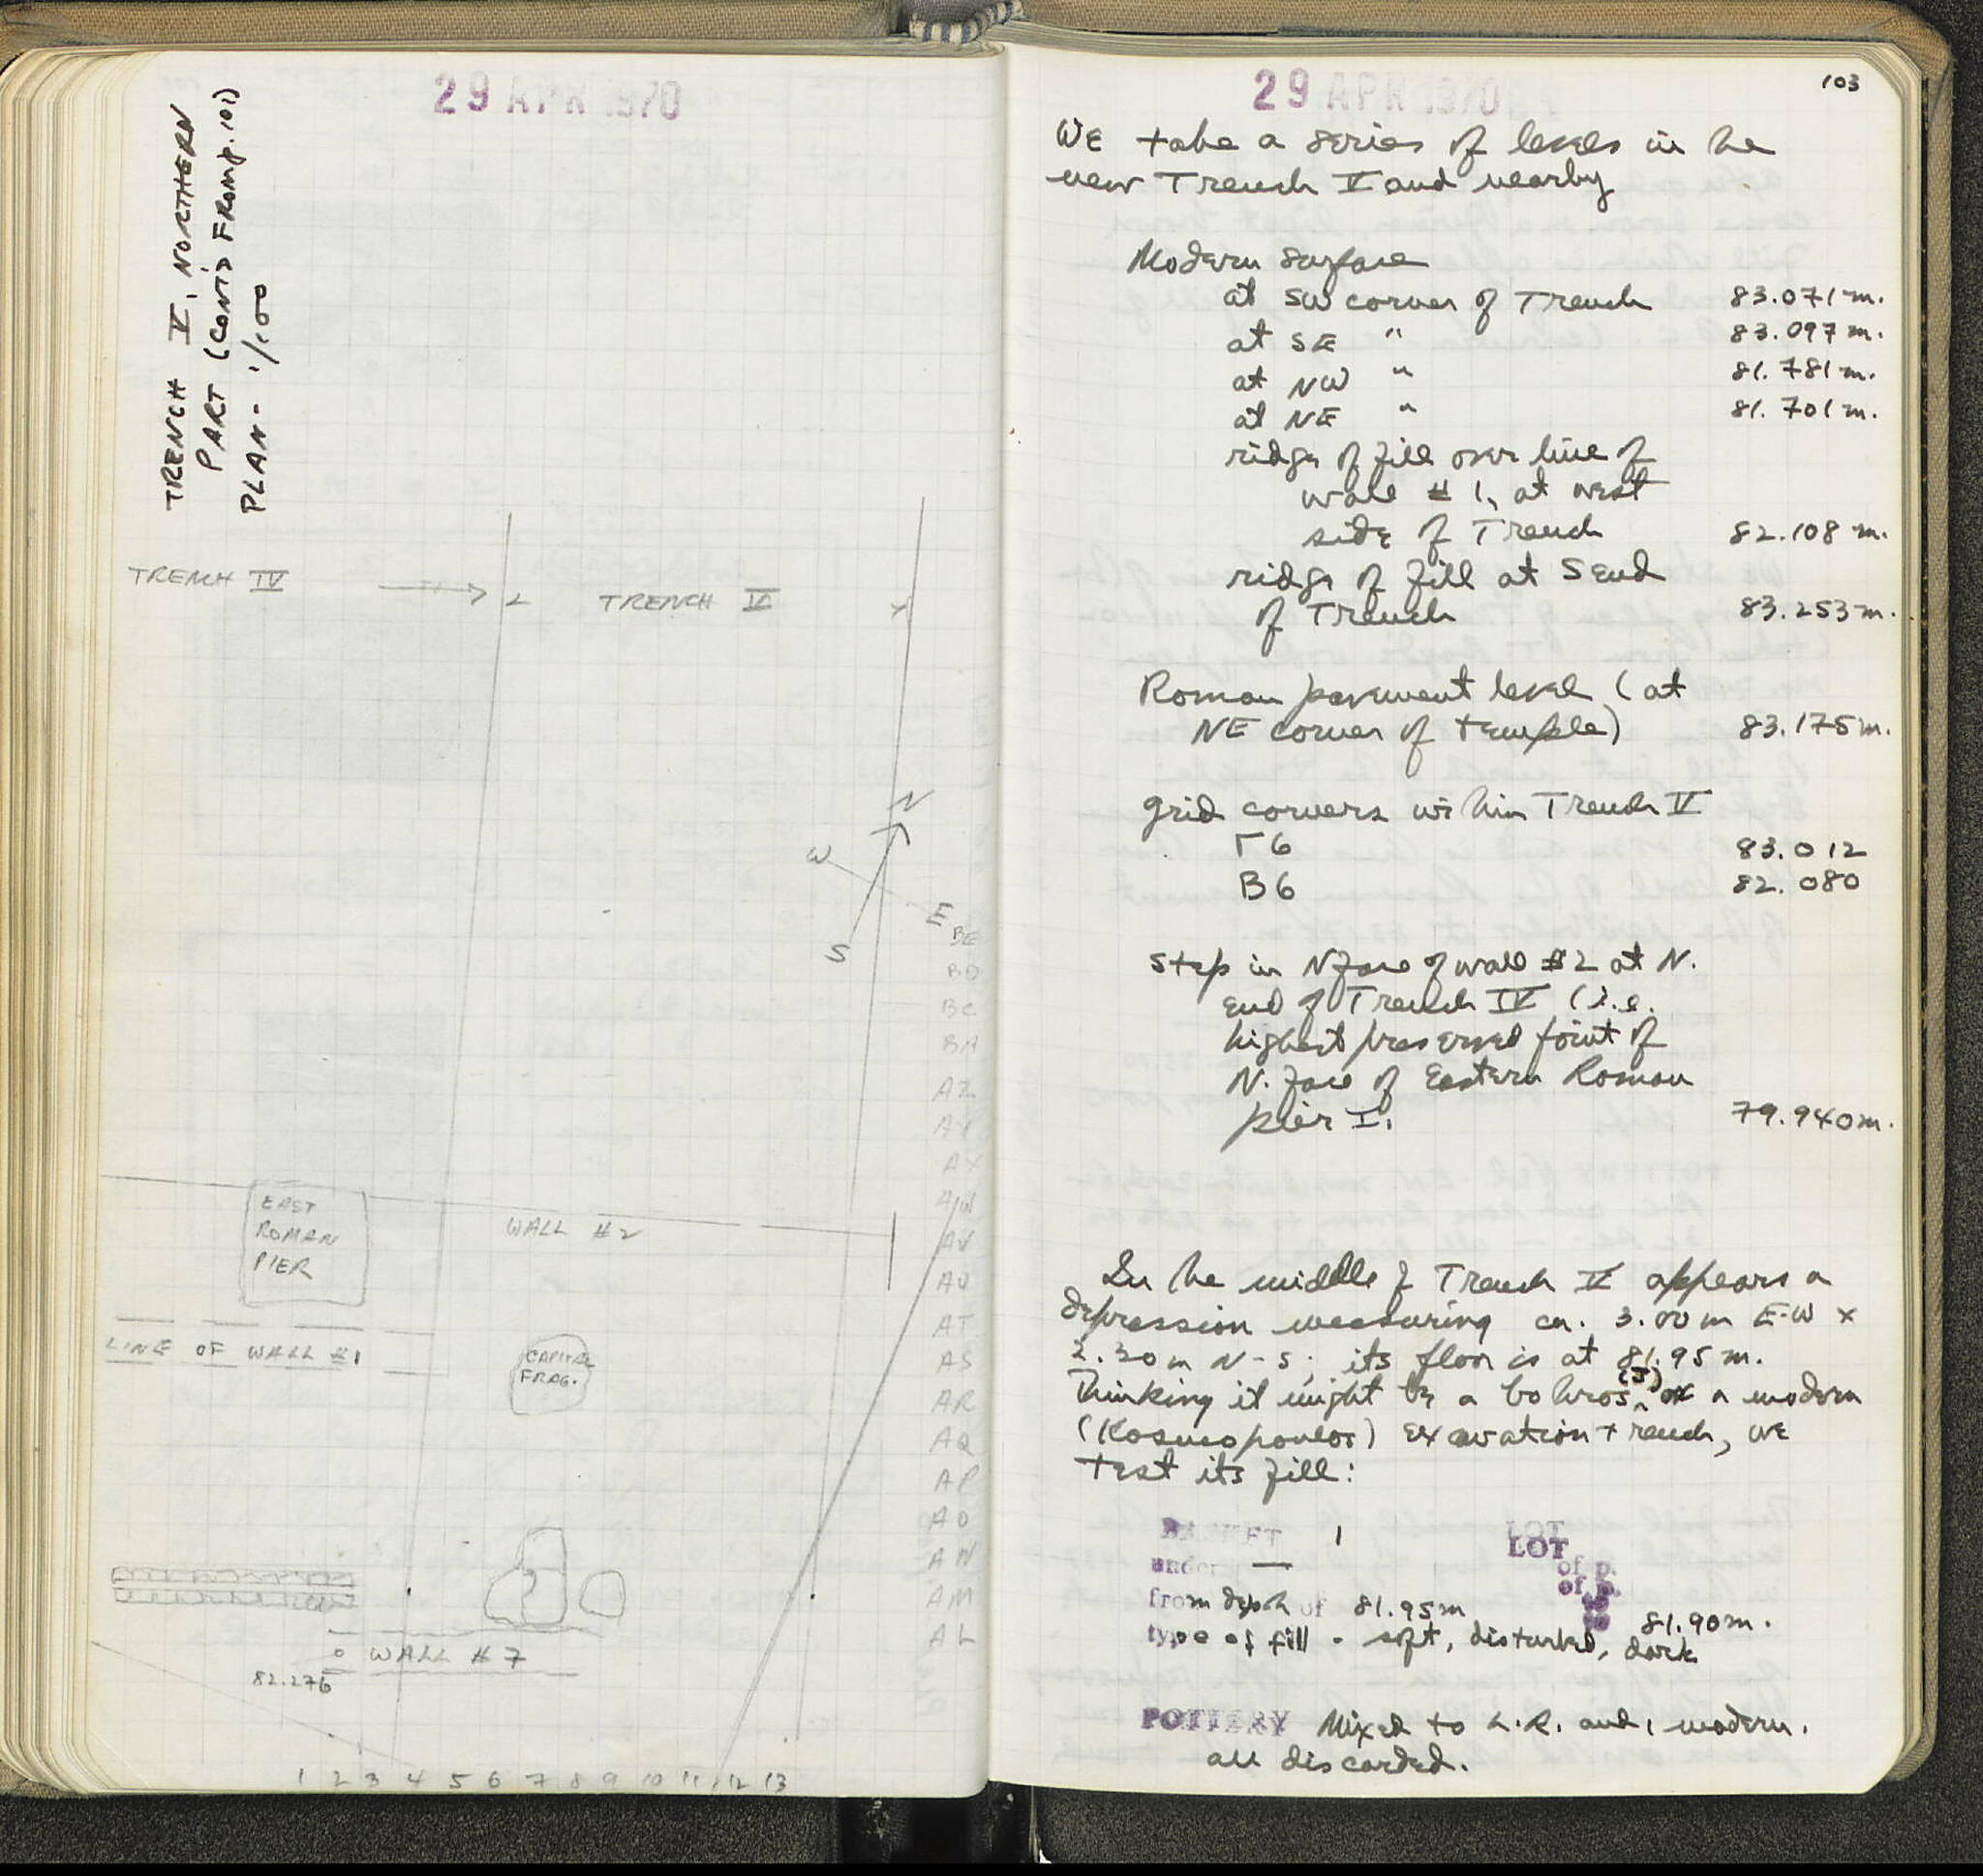 29 APR 1970
TRENCH V, NORTHERN
PART (CONT'D FROM p. 101)
PLAN - 1/100
TRENCH IV
TRENCH V
N
W
E
S
BE
BD
BC
BA
AZ
AY
AX
AW
AV
AU
AT
AS
AR
AQ
AP
AO
AN
AM
AL
EAST
ROMAN
PIER
WALL #2
LINE OF WALL #1
CAPITAL
FRAG.
WALL #7
82.276
1 2 3 4 5 6 7 8 9 10 11 12 13
103
29 APR 1970
We take a series of levels in the
new Trench V and nearby
Modern surface
at SW corner of Trench 83.071 m.
at SE " 83.097 m.
at NW " 81.781 m.
at NE " 81.701 m.
ridge of fill over line of
wall #1, at west
side of Trench 82.108 m.
ridge of fill at S end
of Trench 83.253 m.
Roman pavement level (at
NE corner of temple) 83.175 m.
grid corners within Trench V
Γ6 83.012
B6 82.080
Step in N face of wall #2 at N.
end of Trench IV (i.e.
highest preserved point of
N. face of Eastern Roman
pier I. 79.940 m.
In the middle of Trench V appears a
depression measuring ca. 3.00 m E-W x
2.30 m N-S; its floor is at 81.95 m.
Thinking it might be a bothros, or a modern
(Kosmopoulos) excavation trench, we
test its fill:
BASKET 1 LOT
LOT
under — of p.
of p.
from depth of 81.95 m to 81.90 m.
type of fill - soft, disturbed, dark
POTTERY Mixed to L.R. and modern.
all discarded.